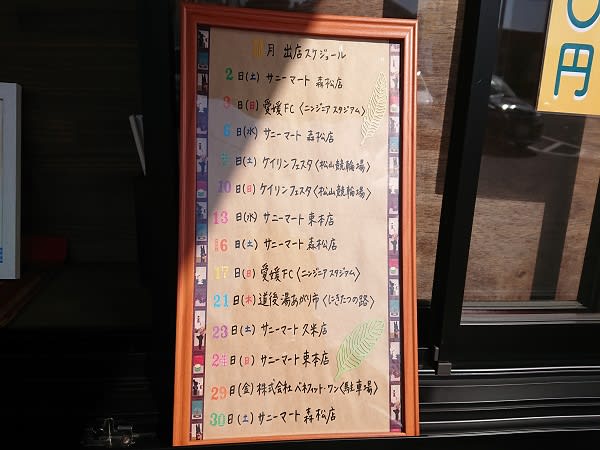 月 出店スケジュール
2日(土) サニーマート 森松店
3日(日) 愛媛FC〈ニンジニアスタジアム〉
6日(水) サニーマート 森松店
9日(土) ケイリンフェスタ〈松山競輪場〉
10日(日) ケイリンフェスタ〈松山競輪場〉
13日(水) サニーマート 東本店
16日(土) サニーマート 森松店
17日(日) 愛媛FC〈ニンジニアスタジアム〉
21日(木) 道後湯あがり市〈にきたつの路〉
23日(土) サニーマート 久米店
24日(日) サニーマート 東本店
29日(金) 株式会社ベネフィット・ワン〈駐車場〉
30日(土) サニーマート 森松店
円